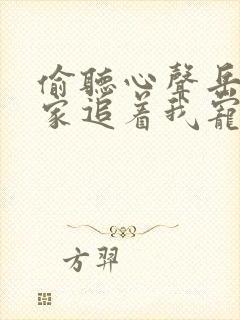 偷聽心聲岳
家追着我寵
方羿